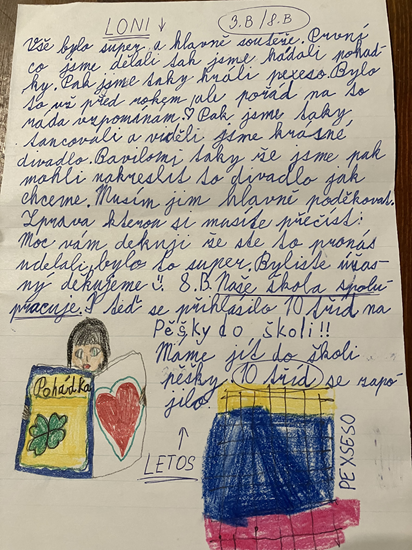 LONI ↓ 3.B/8.B
Vše bylo super a hlavně souteže. První
co jsme dělali tak jsme hádali pohád-
ky. Pak jsme taky hráli pexeso. Bylo
to už před rokem ale pořád na to
ráda vzpomínám ♡ Pak jsme taky
tancovali a viděli jsme krásné
divadlo. Bavilomi taky že jsme pak
mohli nakreslit to divadlo jak
chceme. Musím jim hlavně poděkovat.
Zprava kterou si musíte přečíst:
Moc vám dekuji že ste to pronás
udelali, bylo to super. Byliste úžas-
ny dekujeme !! 8.B. Naše škola spolu-
pracuje. I teď se přihlásilo 10 tříd na
Pěšky do školi!!
Máme jít do školi
pěšky (10 tříd) se zapo-
jilo.
↑
LETOS
Pohádka
PEXSESO